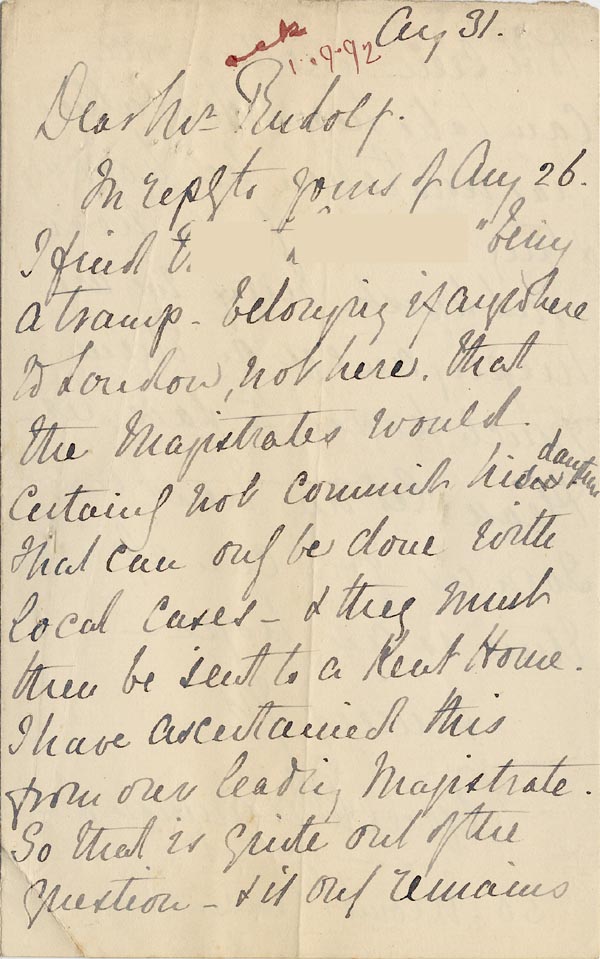 Aug 31.
ack
1.9.92
Dear Mr Rudolf.
In reply to yours of Aug 26.
I find E. " " being
a tramp - belonging if anywhere
to London, not here. that
the Magistrates would
certainly not commit his daughter
that can only be done with
local cases - & they must
then be sent to a Kent Home.
I have ascertained this
from our leading Magistrate.
So that is quite out of the
question - & it only remains